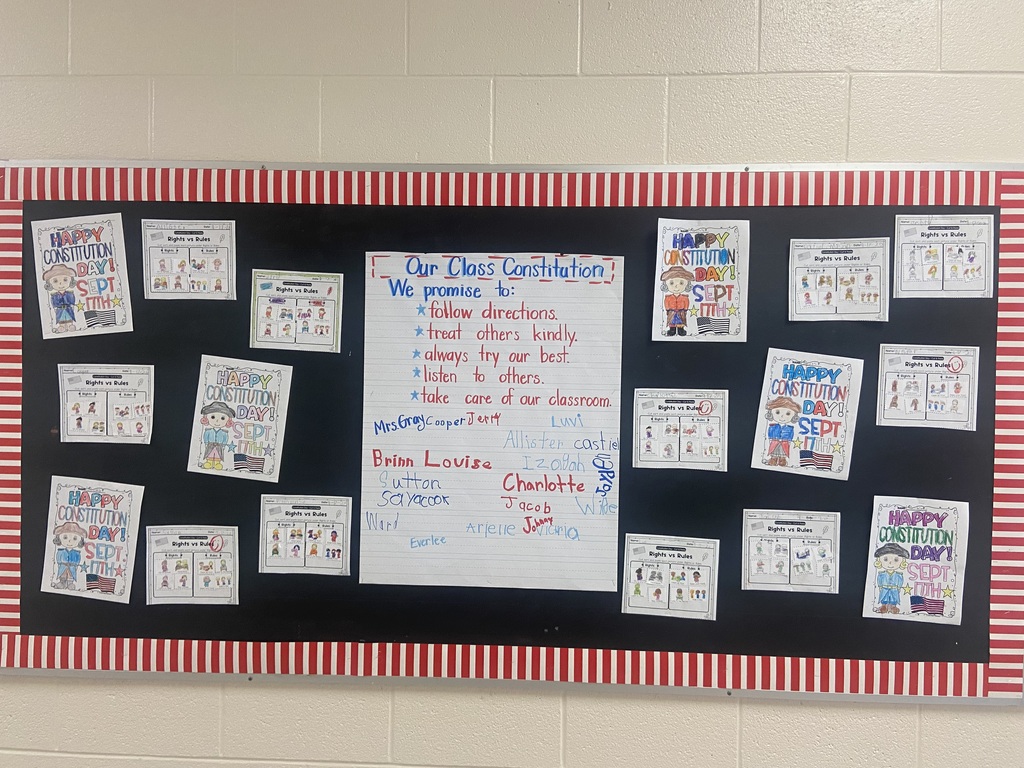 HAPPY
CONSTITUTION
DAY!
SEPT
17TH
Rights vs Rules
Rights Rules
Rights vs Rules
Rights vs Rules
Rights Rules
HAPPY
CONSTITUTION
DAY!
SEPT
17TH
HAPPY
CONSTITUTION
DAY!
SEPT
17TH
Rights vs Rules
Rights Rules
Rights vs Rules
Rights Rules
Our Class Constitution
We promise to:
follow directions.
treat others kindly.
always try our best.
listen to others.
take care of our classroom.
Mrs. Gray Cooper Jerry Luvi
Allister castiel
Brinn Louise Izaiah
Sutton Charlotte
Jacob
Ward Johnny
Arjene
Everlee
HAPPY
CONSTITUTION
DAY!
SEPT
17TH
Rights vs Rules
Rights Rules
Rights vs Rules
Rights Rules
Rights vs Rules
Rights Rules
HAPPY
CONSTITUTION
DAY!
SEPT
17TH
Rights vs Rules
Rights Rules
Rights vs Rules
Rights Rules
Rights vs Rules
Rights Rules
HAPPY
CONSTITUTION
DAY!
SEPT
17TH